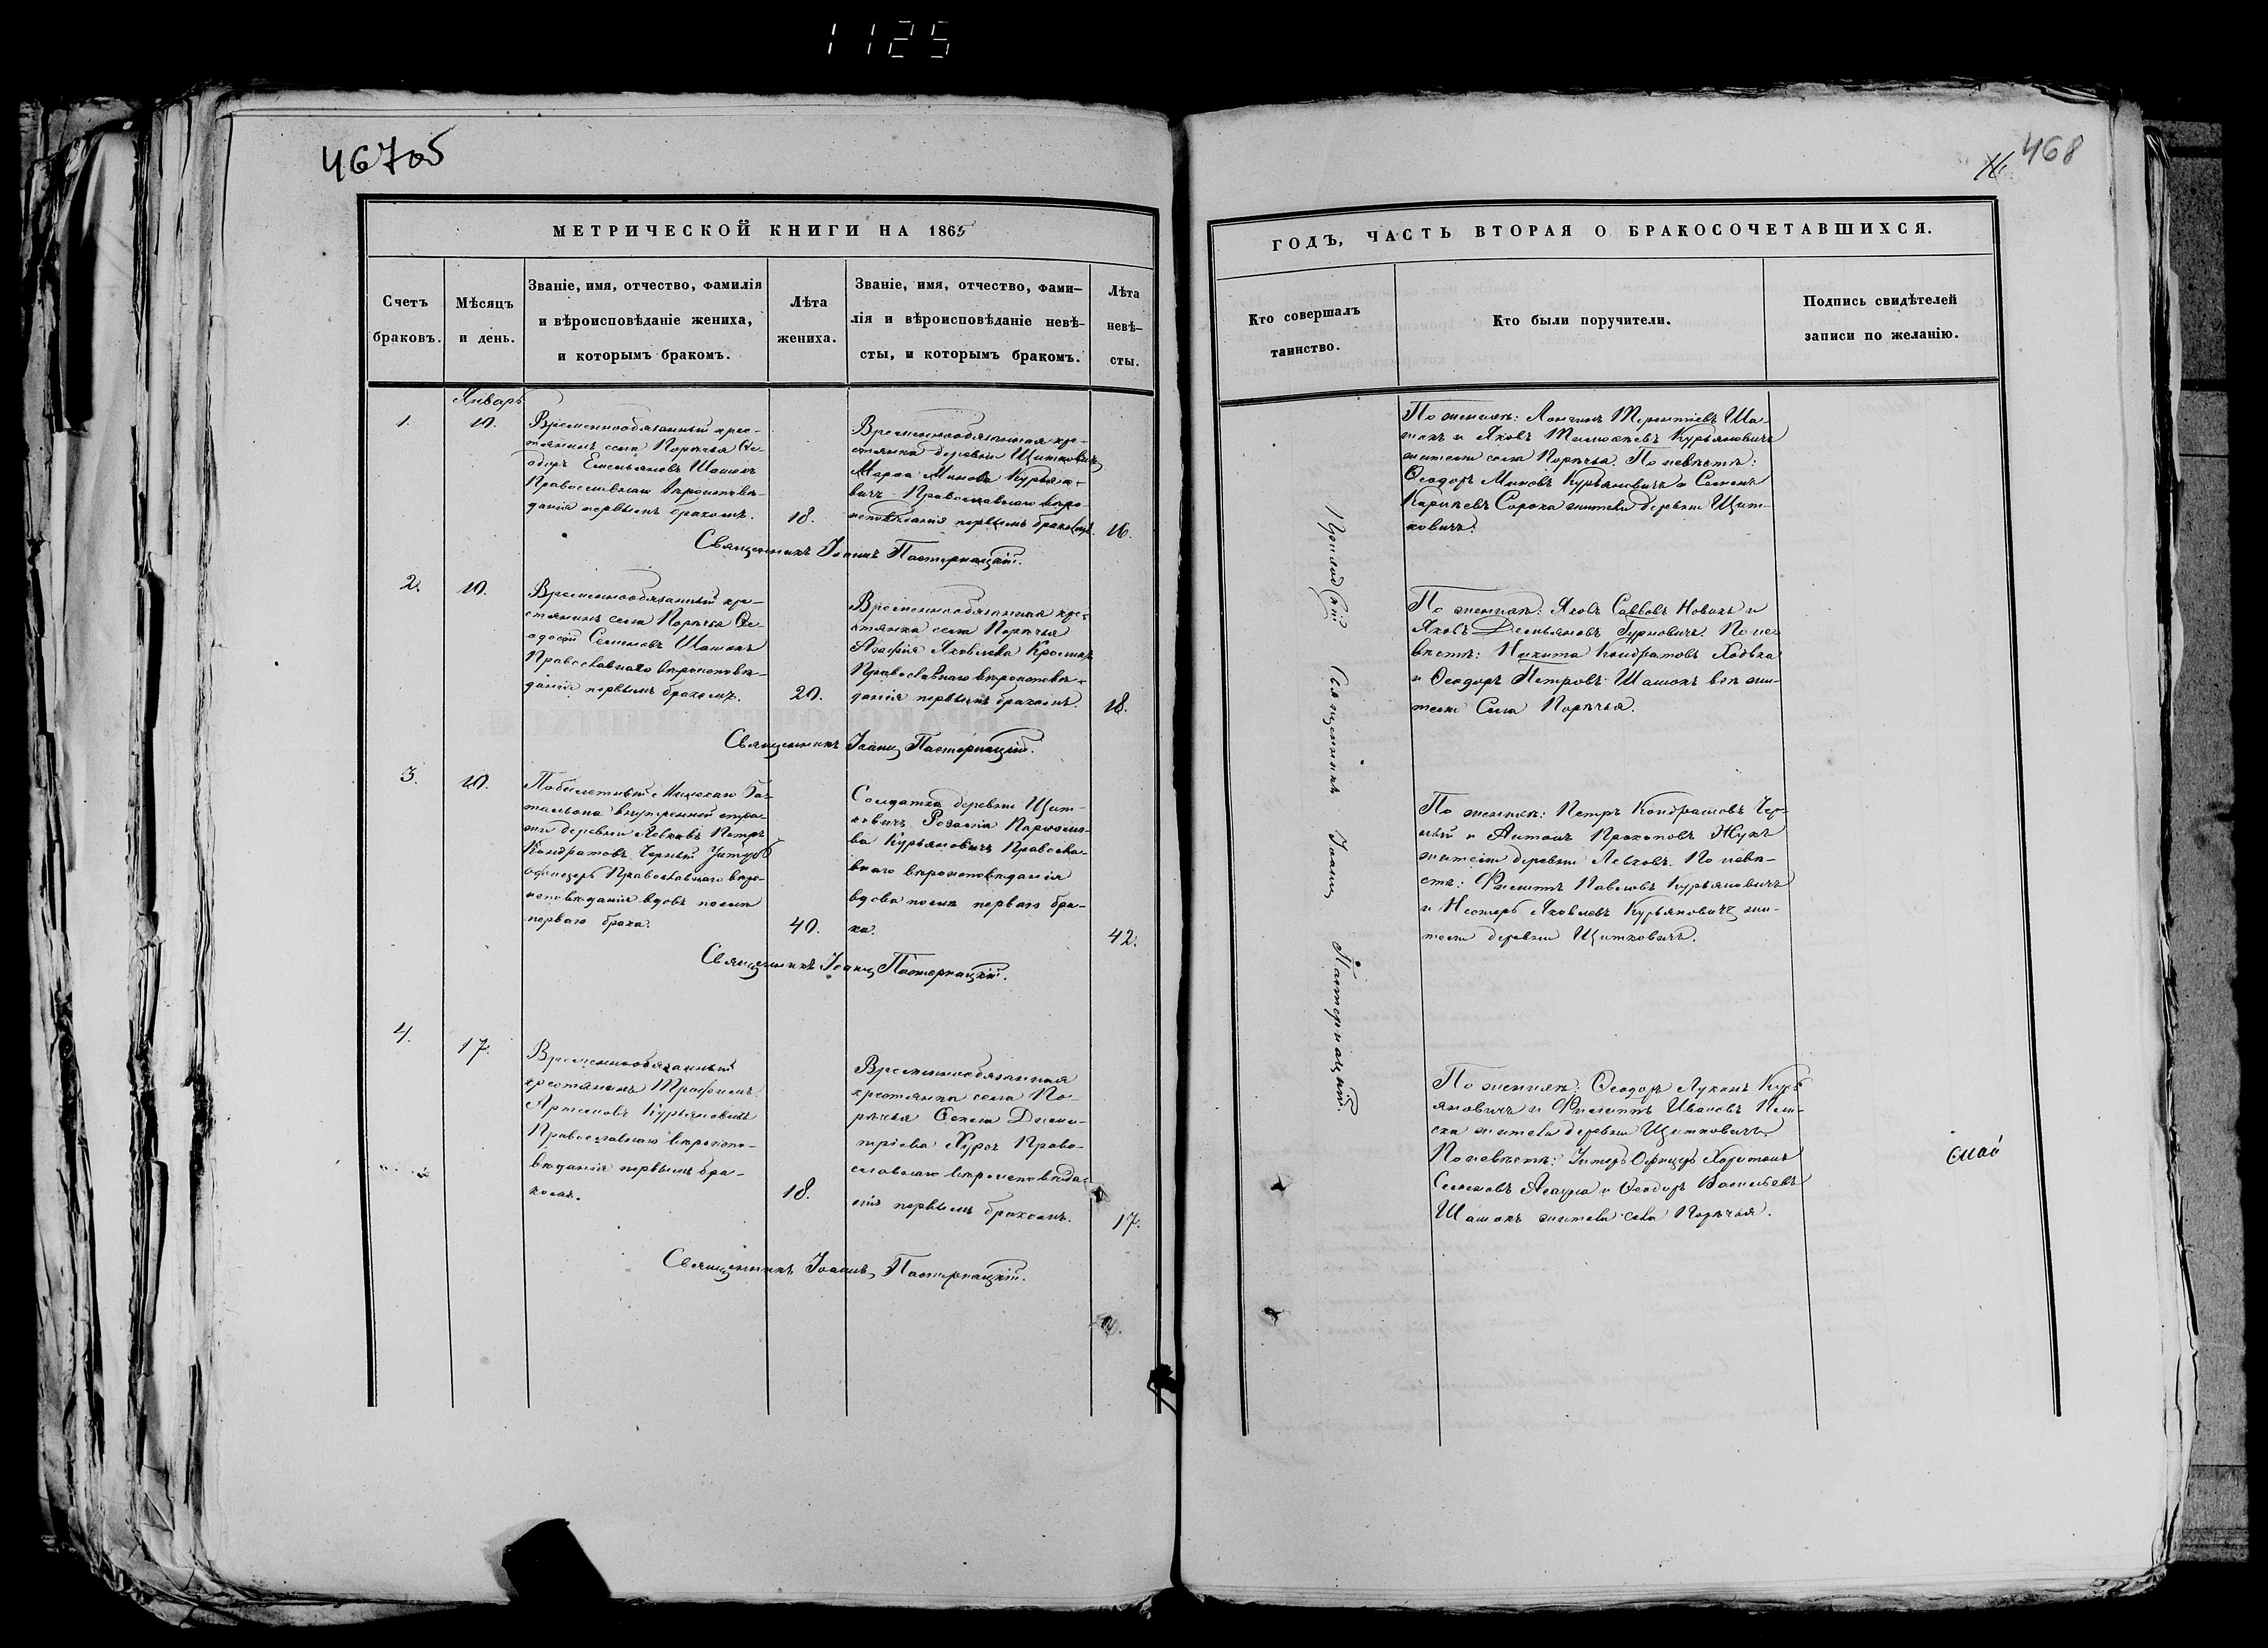 1125
467об
468
МЕТРИЧЕСКОЙ КНИГИ НА 1865
Счетъ
браковъ.
Мѣсяцъ
и день.
Званіе, имя, отчество, фамилія
и вѣроисповѣданіе жениха,
и которымъ бракомъ.
Лѣта
жениха.
Званіе, имя, отчество, фами-
лія и вѣроисповѣданіе невѣ-
сты, и которымъ бракомъ.
Лѣта
невѣ-
сты.
Январь
1.
10.
Временнообязанный крес-
тьянинъ села Порѣчья Ѳе-
одоръ Емельяновъ Шашокъ
Православнаго вѣроисповѣ-
данія первымъ бракомъ.
18.
Временнообязанная кре-
стянка деревни Щитковичъ
Марѳа Минова Курьяно-
вичъ Православнаго вѣро
исповѣданія первымъ бракомъ.
16.
Священникъ Іоаннъ Пастернацкій.
2.
10.
Временнообязанный кре-
стянинъ села Порѣчья Ѳе-
одосій Семеновъ Шашокъ
Православнаго вѣроисповѣ-
данія первымъ бракомъ.
20.
Временнообязанная кре-
стянка села Порѣчья
Агафія Яковлева
Православнаго вѣроисповѣ-
данія первымъ бракомъ.
18.
Священникъ Іоаннъ Пастернацкій.
3.
10.
Побилетный Минскаго ба-
тальона внутренней стра-
жи деревни Левковъ Петръ
Кондратовъ Черный Унтеръ
офицеръ Православнаго вѣро-
исповѣданія вдовъ послѣ
перваго брака.
40.
Солдатка деревни Щит-
ковичъ Розалія
Курьяновичъ Православ-
внаго вѣроисповѣданія
вдова послѣ перваго бра-
ка.
42.
Священникъ Іоаннъ Пастернацкій.
4.
17.
Временнообязанный
крестянинъ Трофимъ
Артемовъ Курьяновичъ
Православнаго вѣроиспо-
вѣданія первымъ бра-
комъ.
18.
Временнообязанная
крестянка села По-
рѣчья Ѳекла Дими-
тріева Хурсъ Право-
славнаго вѣроисповѣда-
нія первымъ бракомъ.
17.
Священникъ Іоаннъ Пастернацкій.
ГОДЪ, ЧАСТЬ ВТОРАЯ О БРАКОСОЧЕТАВШИХСЯ.
Кто совершалъ
таинство.
Кто были поручители.
Подпись свидѣтелей
записи по желанію.
Приходскій Священникъ Іоаннъ Пастернацкій.
По женихѣ: Лонгинъ Терентіевъ Ша-
шокъ и Яковъ Тимоѳеевъ Курьяновичъ
жители села Порѣчья. По невѣстѣ:
Ѳеодоръ Миновъ Курьяновичъ и Семенъ
Сорока жители деревни Щит-
ковичъ.
По женихѣ: Яковъ Саввовъ Новикъ и
Яковъ Демьяновъ Гурновичъ. По не-
вѣстѣ: Никита Кондратовъ Ходька
и Ѳеодоръ Петровъ Шашокъ всѣ жи-
тели Села Порѣчья.
По женихѣ: Петръ Кондратовъ Чер-
ный и Антонъ Прокоповъ Жукъ
жители деревни Левковъ. По невѣ-
стѣ: Филиппъ Павловъ Курьяновичъ
и Несторъ Яковлевъ Курьяновичъ жи-
тели деревни Щитковичъ.
По женихѣ: Ѳеодоръ Лукинъ Курь
яновичъ и Филиппъ Ивановъ
жители деревни Щитковичъ
По невѣстѣ: Унтеръ Офицеръ Харитонъ
Семеновъ и Ѳеодоръ Васильевъ
Шашокъ жители села Порѣчья.